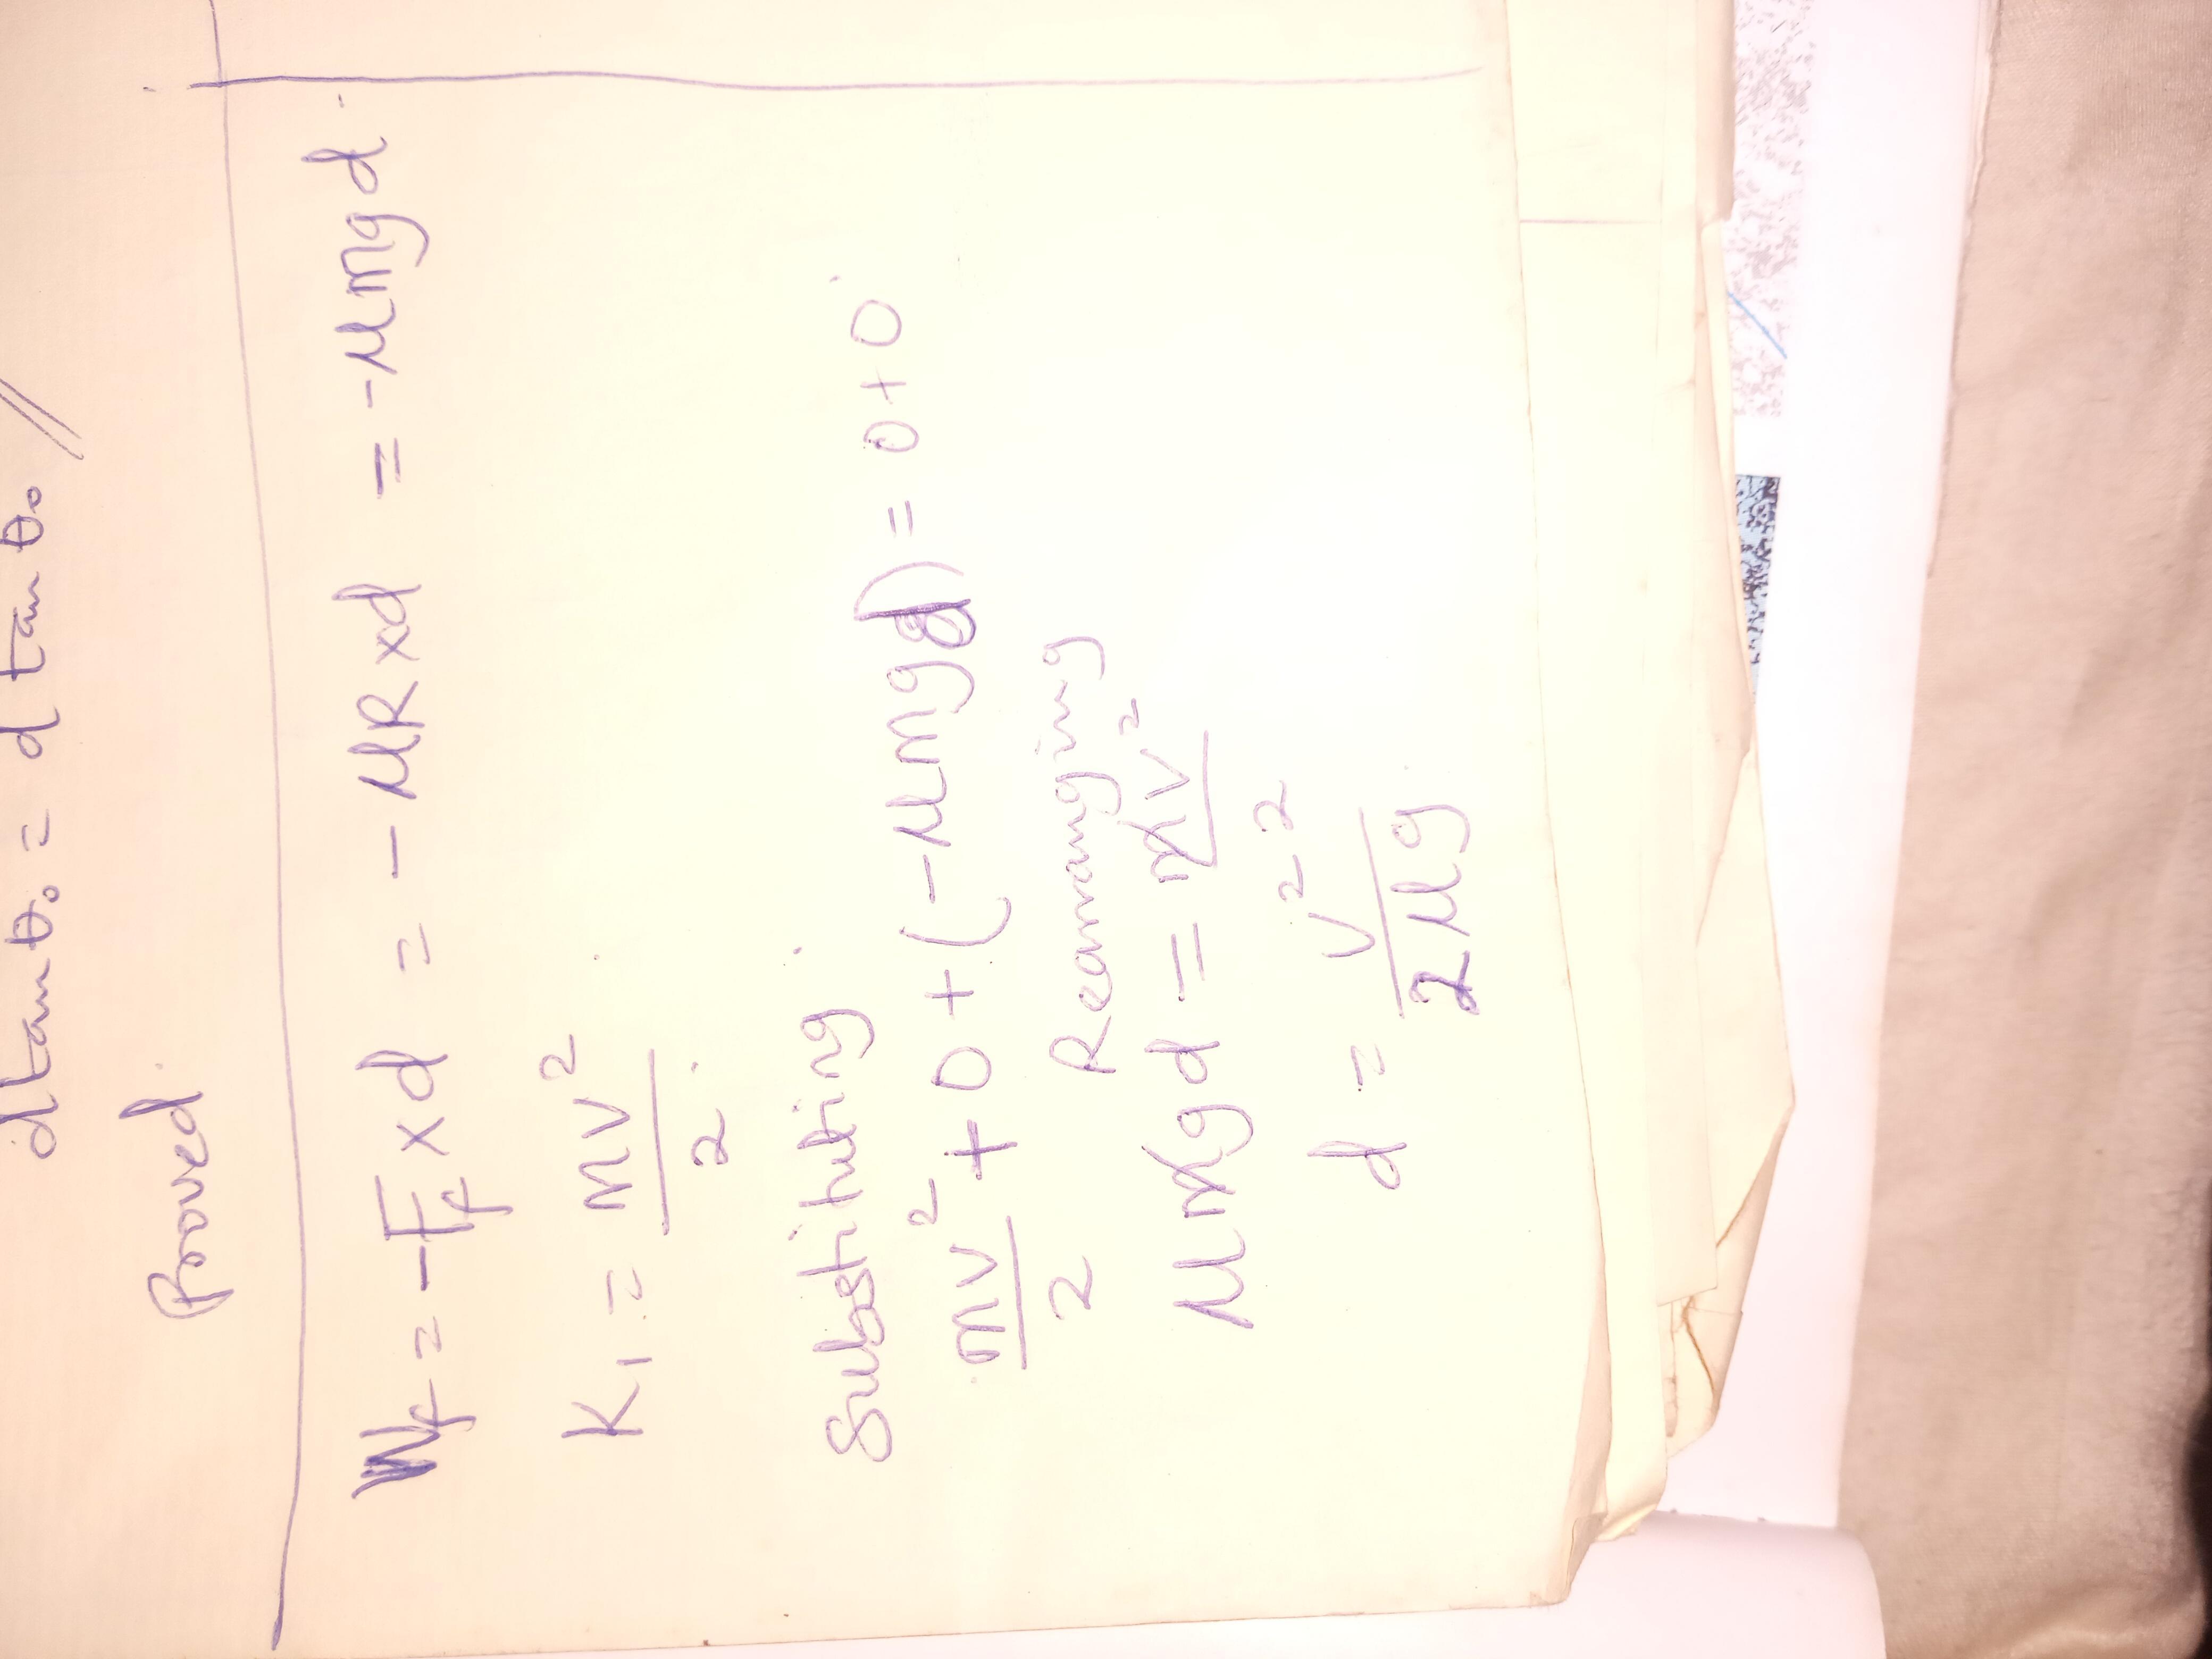 dtanθ₀ = d tanθ₀ //
Proved.
W_f = -F_f x d = - μR x d = -μmgd.
K₁ = mv²/2.
Substituting
mv²/2 + 0 + (-μmgd) = 0 + 0
Rearranging
μmgd = mv²/2
d = v²/2μg